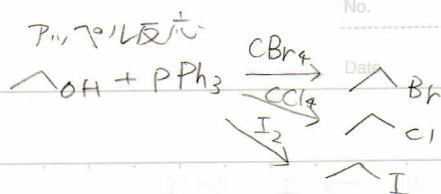 No.
Date
アッペル反応
OH + PPh3
CBr4
Br
CCl4
Cl
I2
I